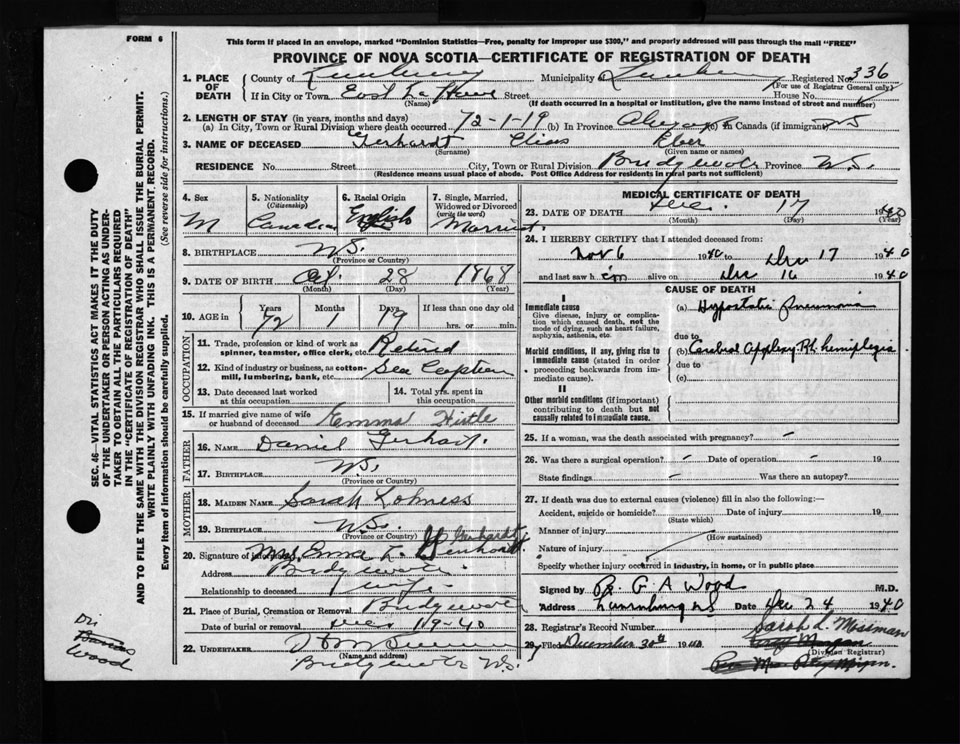 FORM 6
This form if placed in an envelope, marked "Dominion Statistics—Free, penalty for improper use $300," and properly addressed will pass through the mail "FREE"
PROVINCE OF NOVA SCOTIA—CERTIFICATE OF REGISTRATION OF DEATH
SEC. 46—VITAL STATISTICS ACT MAKES IT THE DUTY
OF THE UNDERTAKER OR PERSON ACTING AS UNDER-
TAKER TO OBTAIN ALL THE PARTICULARS REQUIRED
IN THE "CERTIFICATE OF REGISTRATION OF DEATH"
AND TO FILE THE SAME WITH THE DIVISION REGISTRAR WHO SHALL ISSUE THE BURIAL PERMIT.
WRITE PLAINLY WITH UNFADING INK. THIS IS A PERMANENT RECORD.
Every item of information should be carefully supplied. (See reverse side for instructions.)
Dr
Wood
1. PLACE OF DEATH County of Lunenburg Municipality Lunenburg Registered No. 336
(For use of Registrar General only)
If in City or Town East La Have Street House No.
(Name) (If death occurred in a hospital or institution, give the name instead of street and number)
2. LENGTH OF STAY (in years, months and days)
(a) In City, Town or Rural Division where death occurred 72-1-19 (b) In Province Always (c) in Canada (if immigrant) NS
3. NAME OF DECEASED Gerhardt Elias Eber
(Surname) (Given name or names)
RESIDENCE No. Street City, Town or Rural Division Bridgewater Province N.S.
(Residence means usual place of abode. Post Office Address for residents in rural parts not sufficient)
4. Sex M
5. Nationality (Citizenship) Canadian
6. Racial Origin English
7. Single, Married, Widowed or Divorced (write the word) Married
8. BIRTHPLACE N.S.
(Province or Country)
9. DATE OF BIRTH Oct. 28 1868
(Month) (Day) (Year)
10. AGE in Years 72 Months 1 Days 19 If less than one day old hrs. or min.
OCCUPATION
11. Trade, profession or kind of work as spinner, teamster, office clerk, etc. Retired
12. Kind of industry or business, as cotton-mill, lumbering, bank, etc. Sea Captain
13. Date deceased last worked at this occupation
14. Total yrs. spent in this occupation
15. If married give name of wife or husband of deceased Emma
FATHER
16. NAME Daniel Gerhardt
17. BIRTHPLACE N.S.
(Province or Country)
MOTHER
18. MAIDEN NAME Sarah Lohness
19. BIRTHPLACE N.S.
(Province or Country)
20. Signature of informant Mrs Emma L Gerhardt
Address Bridgewater
Relationship to deceased wife
21. Place of Burial, Cremation or Removal Bridgewater
Date of burial or removal Dec 19-40
22. UNDERTAKER
(Name and address)
Bridgewater N.S.
MEDICAL CERTIFICATE OF DEATH
23. DATE OF DEATH Dec. 17 1940
(Month) (Day) (Year)
24. I HEREBY CERTIFY that I attended deceased from:
Nov 6 1940 to Dec 17 1940
and last saw him alive on Dec 16 1940
CAUSE OF DEATH
I
Immediate cause
Give disease, injury or complication which caused death, not the mode of dying, such as heart failure, asphyxia, asthenia, etc.
(a) Hypostatic Pneumonia
due to
Morbid conditions, if any, giving rise to immediate cause (stated in order proceeding backwards from immediate cause).
(b) Cerebral Apoplexy Rt. hemiplegia
due to
(c)
II
Other morbid conditions (if important) contributing to death but not causally related to immediate cause.
25. If a woman, was the death associated with pregnancy? -
26. Was there a surgical operation? - Date of operation - 19
State findings Was there an autopsy?
27. If death was due to external causes (violence) fill in also the following:—
Accident, suicide or homicide? Date of injury 19
(State which)
Manner of injury
(How sustained)
Nature of injury
Specify whether injury occurred in industry, in home, or in public place
Signed by Dr. G A Wood M.D.
Address Lunenburg NS Date Dec 24 1940
28. Registrar's Record Number
29. Filed December 30th 1940 Sarah L. Mosiman
(Division Registrar)